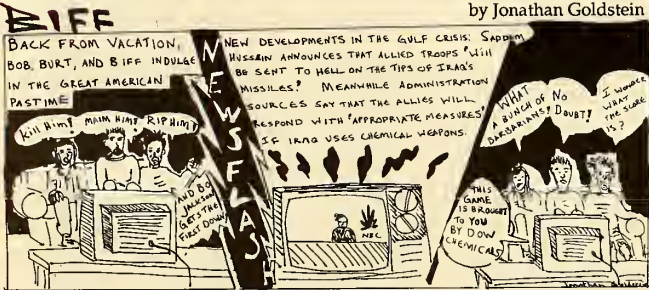 BIFF
by Jonathan Goldstein
BACK FROM VACATION,
BOB, BURT, AND BIFF INDULGE
IN THE GREAT AMERICAN
PASTIME
Kill Him!
MAIM HIM!
RIP HIM!
AND BO
JACKSON
GETS THE
FIRST DOWN!
NEWSFLASH
NEW DEVELOPMENTS IN THE GULF CRISIS: SADDAM
HUSSEIN ANNOUNCES THAT ALLIED TROOPS "Will
BE SENT TO HELL ON THE TIPS OF IRAQ'S
MISSILES." MEANWHILE ADMINISTRATION
SOURCES SAY THAT THE ALLIES WILL
RESPOND WITH "APPROPRIATE MEASURES"
IF IRAQ USES CHEMICAL WEAPONS.
NBC
WHAT
A BUNCH OF
BARBARIANS!
NO
DOUBT!
I WONDER
WHAT
THE SCORE
IS?
THIS
GAME
IS BROUGHT
TO YOU
BY DOW
CHEMICALS
Jonathan Goldstein